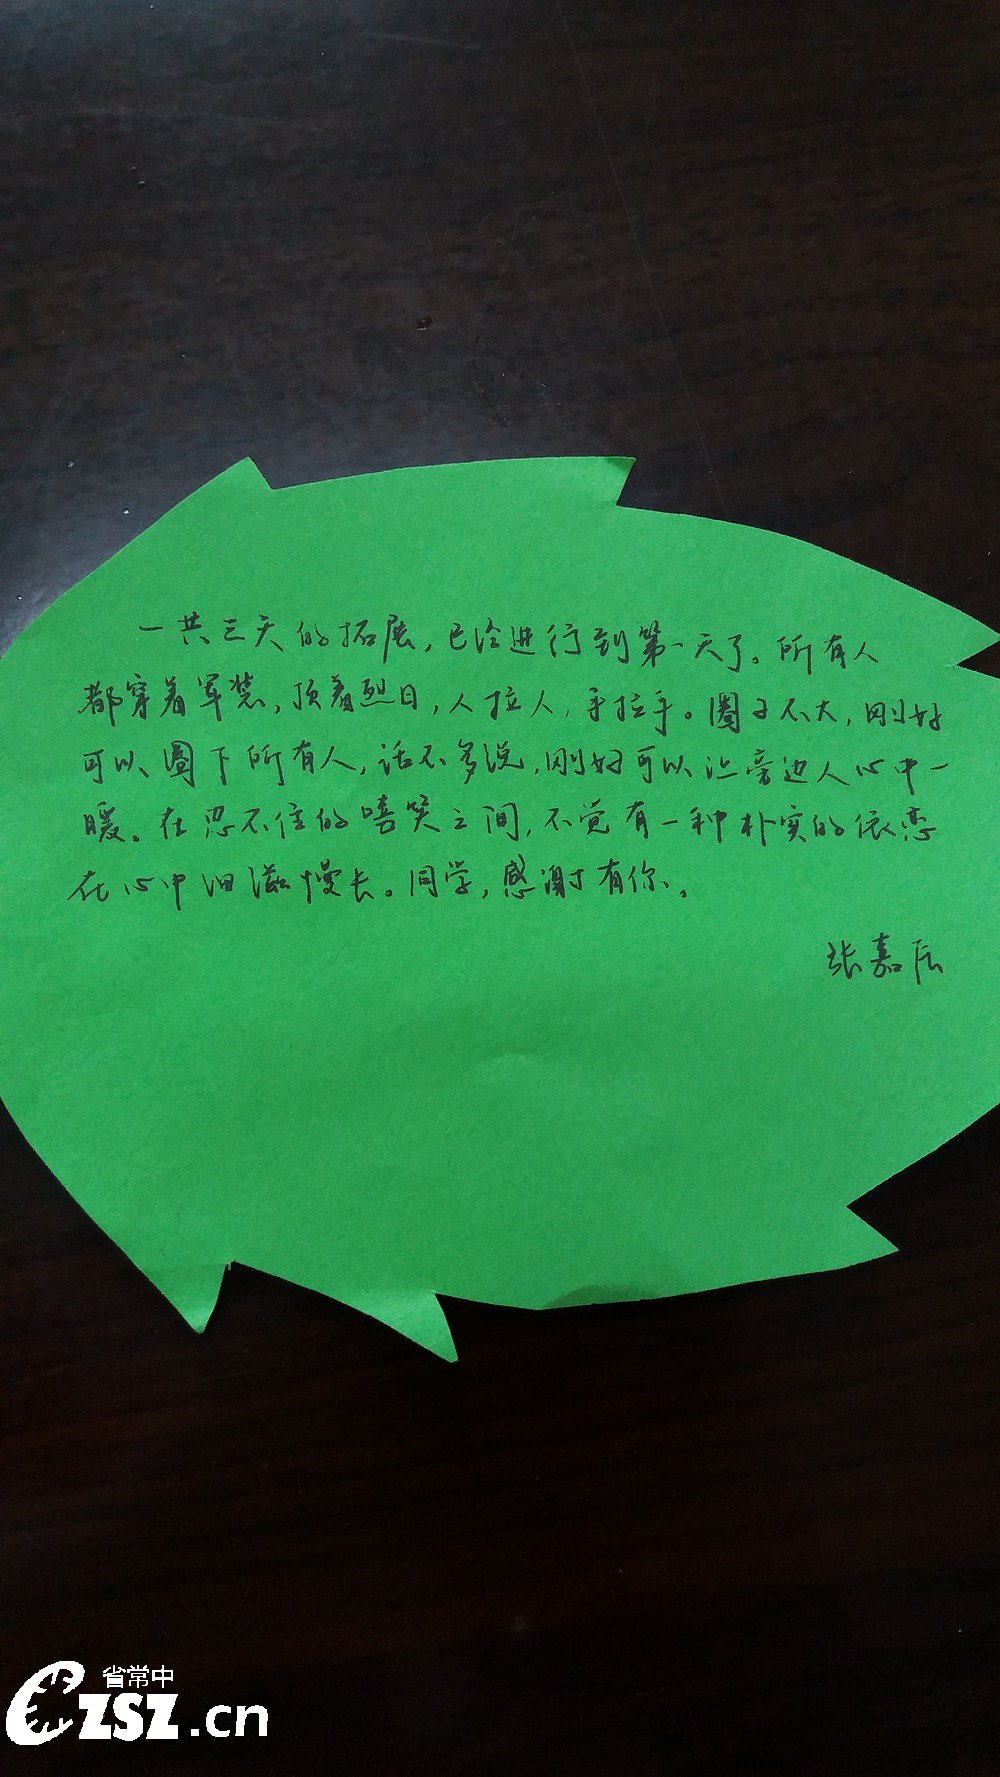 一共三天的拓展，已经进行到第一天了。所有人
都穿着军装，顶着烈日，人拉人，手拉手。圈子不大，刚好
可以圈下所有人，话不多说，刚好可以让旁边人心中一
暖。在忍不住的嘻笑之间，不觉有一种朴实的依恋
在心中滋滋慢长。同学，感谢有你。
张嘉辰
省常中
CZSZ.cn